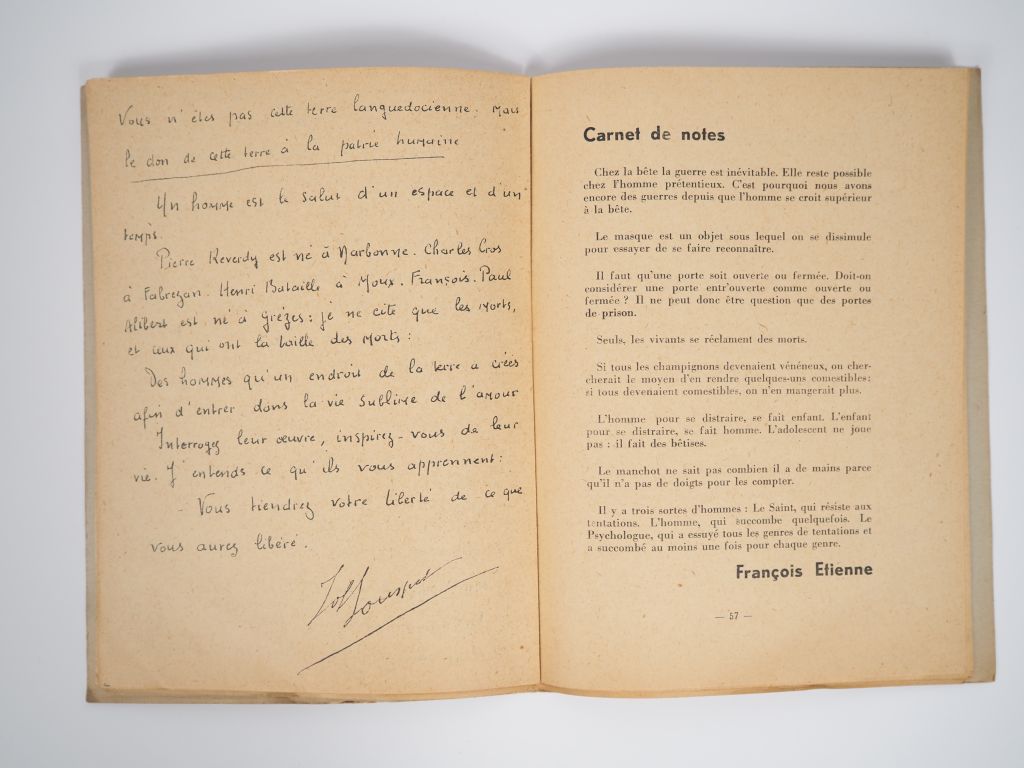 Vous n'êtes pas cette terre languedocienne. Mais
le don de cette terre à la patrie humaine
Un homme est le salut d'un espace et d'un
temps.
Pierre Reverdy est né à Narbonne. Charles Cros
à Fabrezan. Henri Bataille à Moux. François. Paul
Alibert est né à Grèzes : je ne cite que les morts,
et ceux qui ont la taille des morts :
Des hommes qu'un endroit de la terre a créés
afin d'entrer dans la vie sublime de l'amour
Interrogez leur œuvre, inspirez-vous de leur
vie. J'entends ce qu'ils vous apprennent :
- Vous tiendrez votre liberté de ce que
vous aurez libéré.
Carnet de notes
Chez la bête la guerre est inévitable. Elle reste possible
chez l'homme prétentieux. C'est pourquoi nous avons
encore des guerres depuis que l'homme se croit supérieur
à la bête.
Le masque est un objet sous lequel on se dissimule
pour essayer de se faire reconnaître.
Il faut qu'une porte soit ouverte ou fermée. Doit-on
considérer une porte entr'ouverte comme ouverte ou
fermée ? Il ne peut donc être question que des portes
de prison.
Seuls, les vivants se réclament des morts.
Si tous les champignons devenaient vénéneux, on cher-
cherait le moyen d'en rendre quelques-uns comestibles;
si tous devenaient comestibles, on n'en mangerait plus.
L'homme pour se distraire, se fait enfant. L'enfant
pour se distraire, se fait homme. L'adolescent ne joue
pas : il fait des bêtises.
Le manchot ne sait pas combien il a de mains parce
qu'il n'a pas de doigts pour les compter.
Il y a trois sortes d'hommes : Le Saint, qui résiste aux
tentations. L'homme, qui succombe quelquefois. Le
Psychologue, qui a essuyé tous les genres de tentations et
a succombé au moins une fois pour chaque genre.
François Etienne
— 57 —